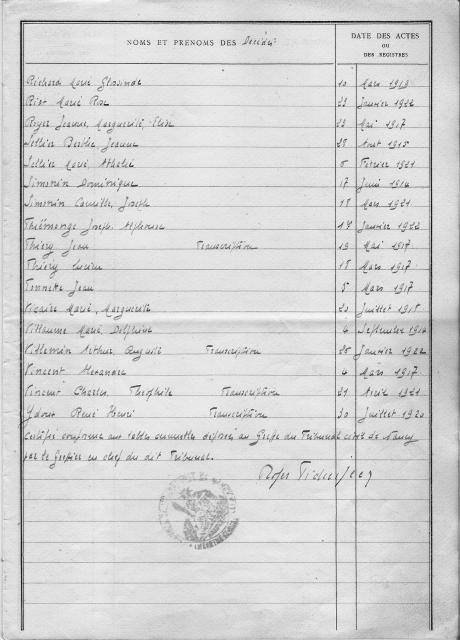 NOMS ET PRENOMS DES Décédés
DATE DES ACTES
OU
DES REGISTRES
Richard Marie Glossinde 10 Mars 1913
Riet Marie Rose 23 Janvier 1922
Royer Jeanne, Marguerite, Elise 23 Mai 1917
Sellier Berthe Jeanne 28 Aout 1915
Sellier Marie 8 Février 1921
Simonin Dominique 17 Juin 1914
Simonin Camille, Joseph 18 Mars 1921
Joseph, Alphonse 19 Janvier 1922
Thiéry Jean Transcription 13 Mai 1917
Thiéry Lucien 18 Mars 1917
Jean 5 Mars 1917
Vicaire Marie, Marguerite 20 Juillet 1918
Villaume Marie, Delphine 4 Septembre 1914
Villemin Arthur Auguste Transcription 28 Janvier 1922
Vincent Alexandre 4 Mars 1917
Vincent Charles, Théophile Transcription 21 Avril 1921
Ydoux René Henri Transcription 30 Juillet 1920
Certifié conforme aux tables annuelles déposées au Greffe du Tribunal civil de Nancy
par le Greffier en chef du dit Tribunal.